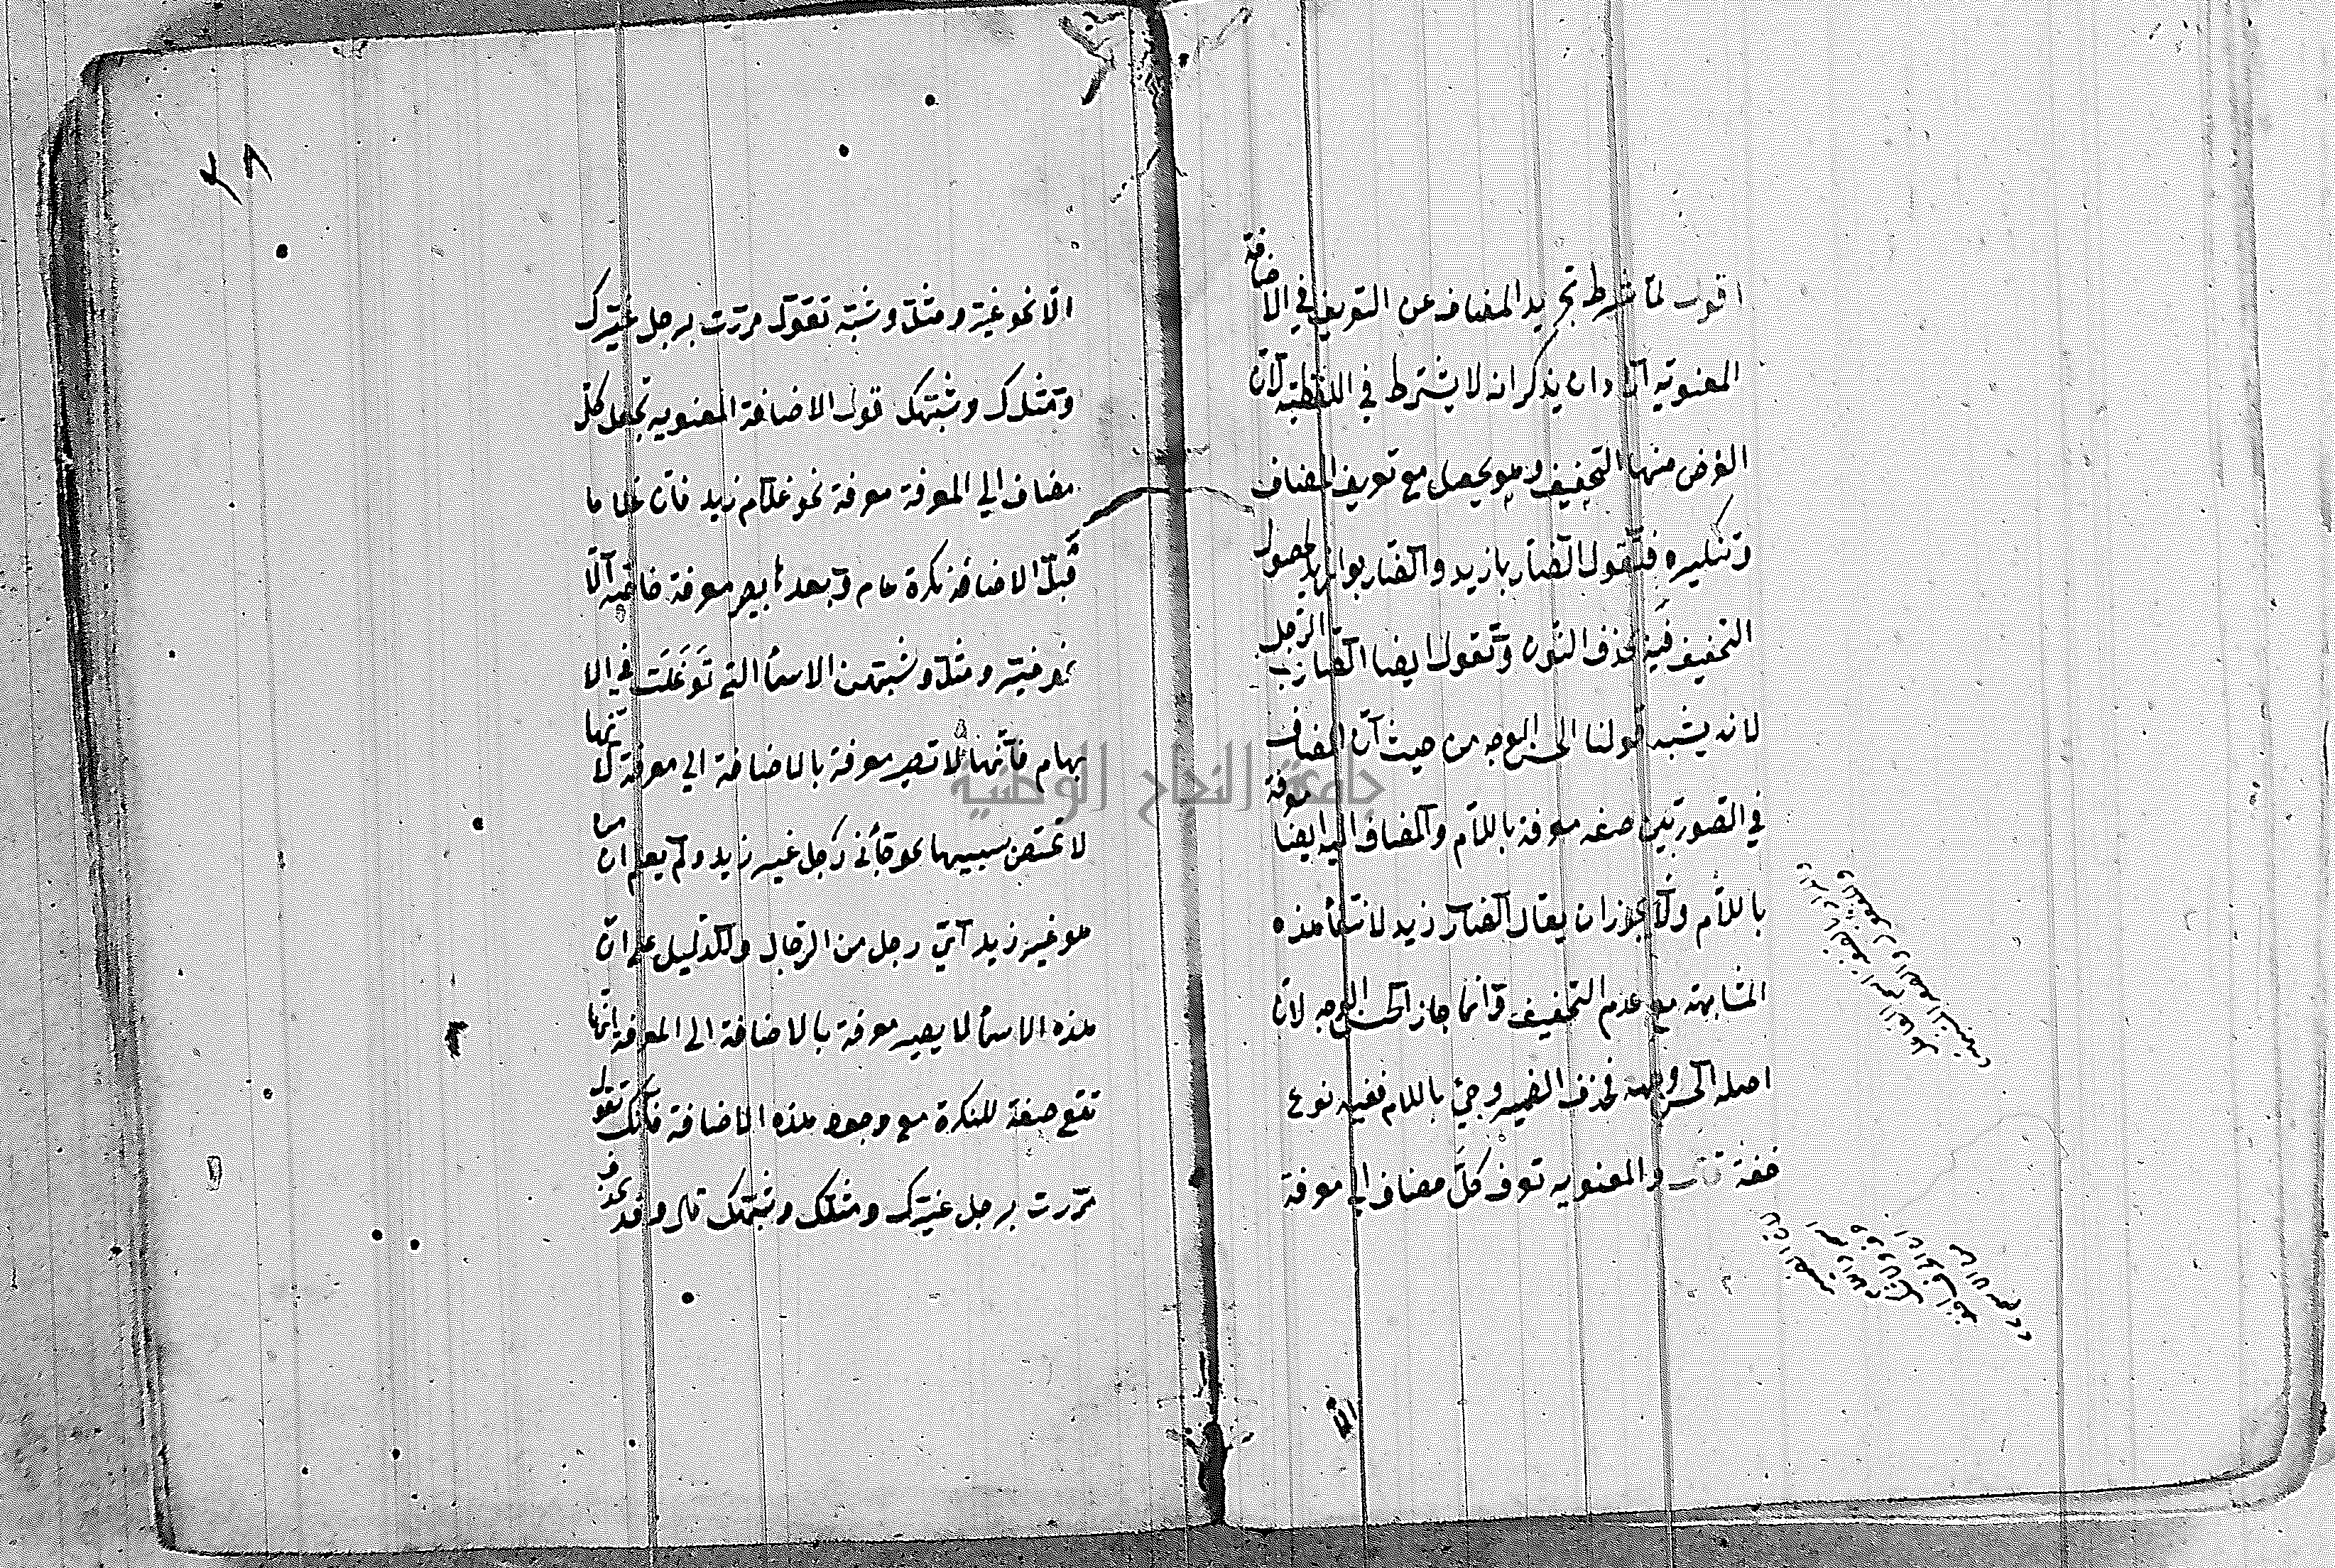 اقول لما شرط تجريد المضاف عن التعريف في الاضافة
المعنوية اراد ان يذكر انه لا يشترط في اللفظية لان
الغرض منها التخفيف وهو يحصل مع تعريف المضاف
وتنكيره فتقول الضاربا زيد والضاربوا زيد لحصول
التخفيف فيه بحذف النون وتقول ايضا الضارب الرجل
لانه يشبه قولنا الحسن الوجه من حيث ان المضاف
في الصورتين صفه معرفة باللام والمضاف اليه ايضا معرفة
باللام ولا يجوز ان يقال الضارب زيد لانتفأ هذه
المشابهة مع عدم التخفيف وانما جاز الحسن الوجه لان
اصله الحسن وجهه فحذف الضمير وجئ باللام ففيه نوع
خفة قال والمعنويه تعرف كل مضاف الي معرفة
الا
٢٨
الا نحو غير ومثل وشبه تقول مررت برجل غيرك
ومثلك وشبهك قول الاضافة المعنويه تجعل كل
مضاف الي المعرفة معرفة نحو غلام زيد فان غلاما
قبل الاضافة نكرة عام وبعدها يصير معرفة خاصة الا
نحو غير ومثل وشبه من الاسمأ التي توغلت في الا
بهام فانها لا تصير معرفة بالاضافة الي معرفة لانها
لا تختص بسببها نحو جأني رجل غير زيد ولم يعلم ان من
هو غير زيد اي رجل من الرجال والدليل علي ان
هذه الاسمأ لا يصير معرفة بالاضافة الى المعرفة انها
تقع صفة للنكرة مع وجود هذه الاضافة فانك تقول
مررت برجل غيرك ومثلك وشبهك قال وقد يحذف